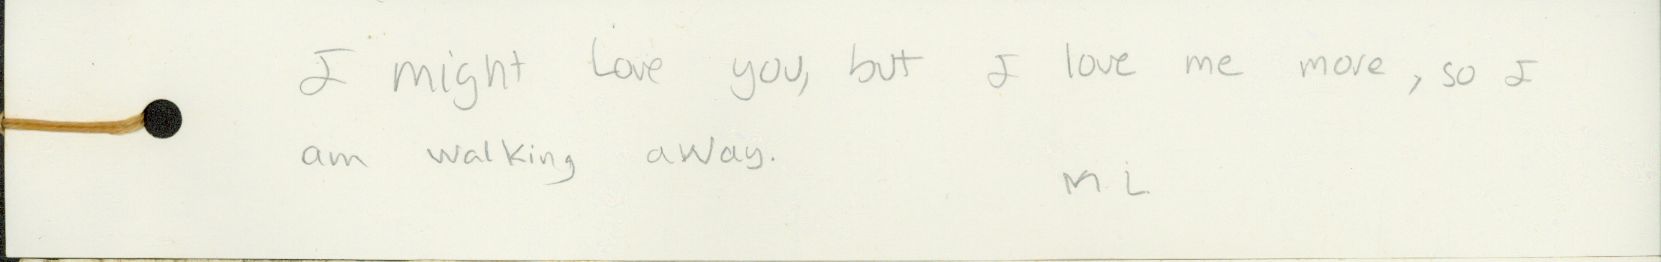 I might Love you, but I love me more, so I
am walking away.
M L